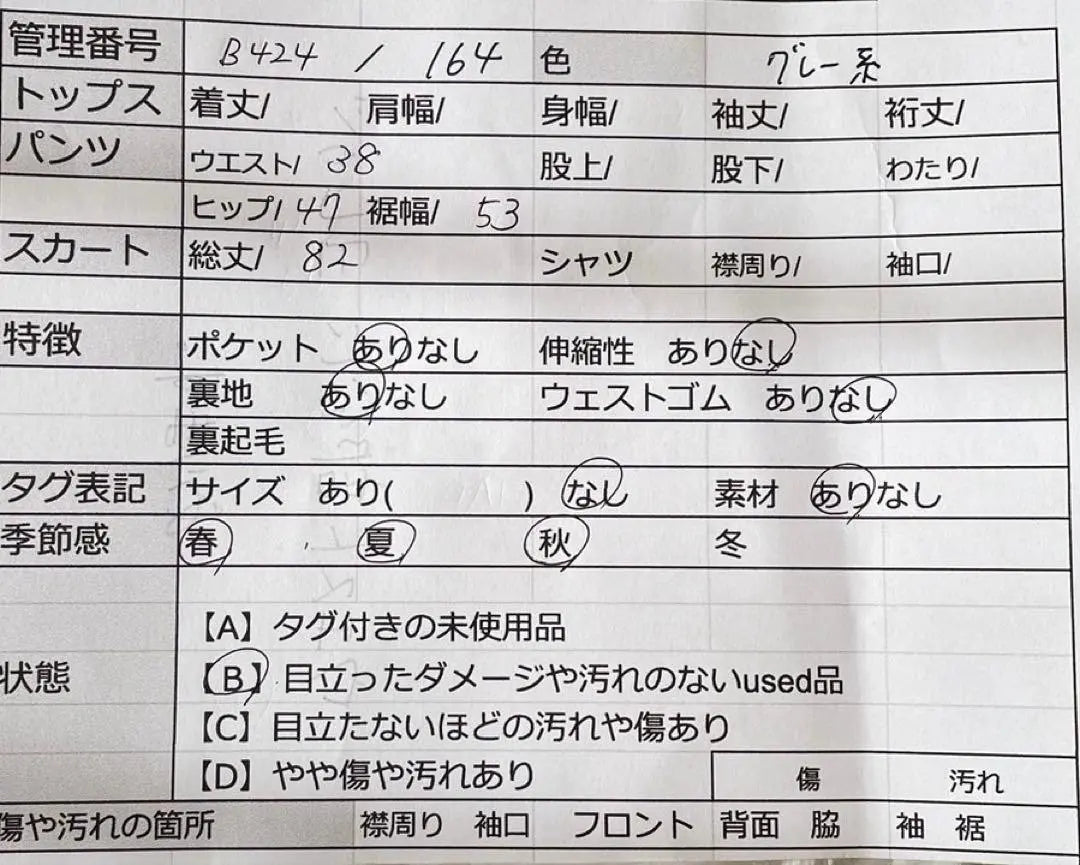 管理番号 B424 / 164 色 グレー系
トップス 着丈/ 肩幅/ 身幅/ 袖丈/ 裄丈/
パンツ ウエスト/ 38 股上/ 股下/ わたり/
ヒップ/ 47 裾幅/ 53
スカート 総丈/ 82 シャツ 襟周り/ 袖口/
特徴 ポケット ありなし 伸縮性 ありなし
裏地 ありなし ウェストゴム ありなし
裏起毛
タグ表記 サイズ あり( ) なし 素材 ありなし
季節感 春 夏 秋 冬
【A】タグ付きの未使用品
状態 【B】目立ったダメージや汚れのないused品
【C】目立たないほどの汚れや傷あり
【D】やや傷や汚れあり 傷 汚れ
傷や汚れの箇所 襟周り 袖口 フロント 背面 脇 袖 裾